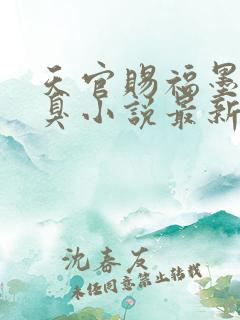 天官赐福墨
真小说最新
沈春友
未经同意禁止转载